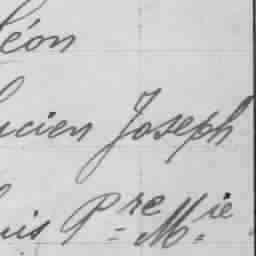 éon
ucien Joseph
uis Pre Mie